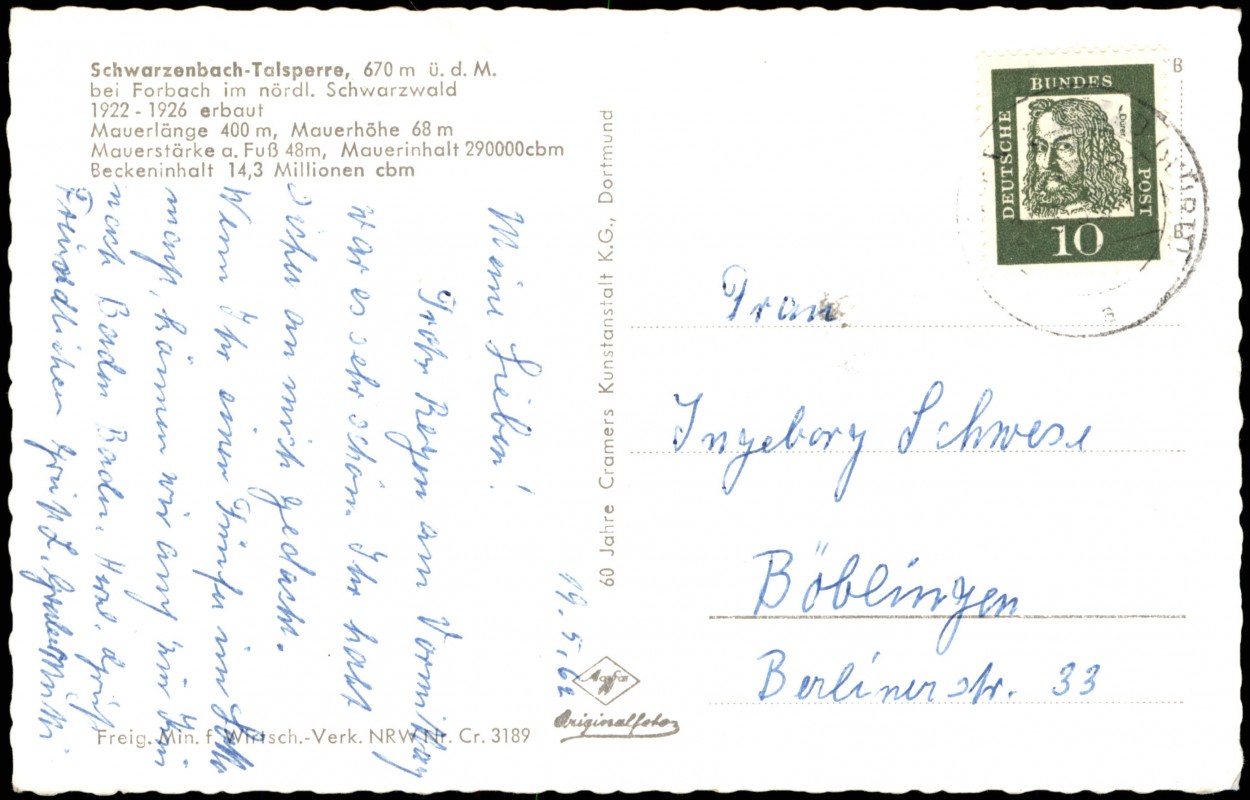 Schwarzenbach-Talsperre, 670 m ü. d. M.
bei Forbach im nördl. Schwarzwald
1922 - 1926 erbaut
Mauerlänge 400 m, Mauerhöhe 68 m
Mauerstärke a. Fuß 48m, Mauerinhalt 290000cbm
Beckeninhalt 14,3 Millionen cbm
19. 5. 62
Meine Lieben!
Trotz Regen am Vormittag
war es sehr schön. Ihr habt
sicher an mich gedacht.
Wenn Ihr einen Fünfer im Lotto
macht, können wir auch im Juni
nach Baden Baden. Herzl.
Freundlichen
Freig. Min. f. Wirtsch.-Verk. NRW Nr. Cr. 3189
60 Jahre Cramers Kunstanstalt K.G., Dortmund
Agfa
Originalfoto
DEUTSCHE
BUNDES
POST
Dürer
10
B
B
a
Frau
Ingeborg Schwese
Böblingen
Berlinerstr. 33